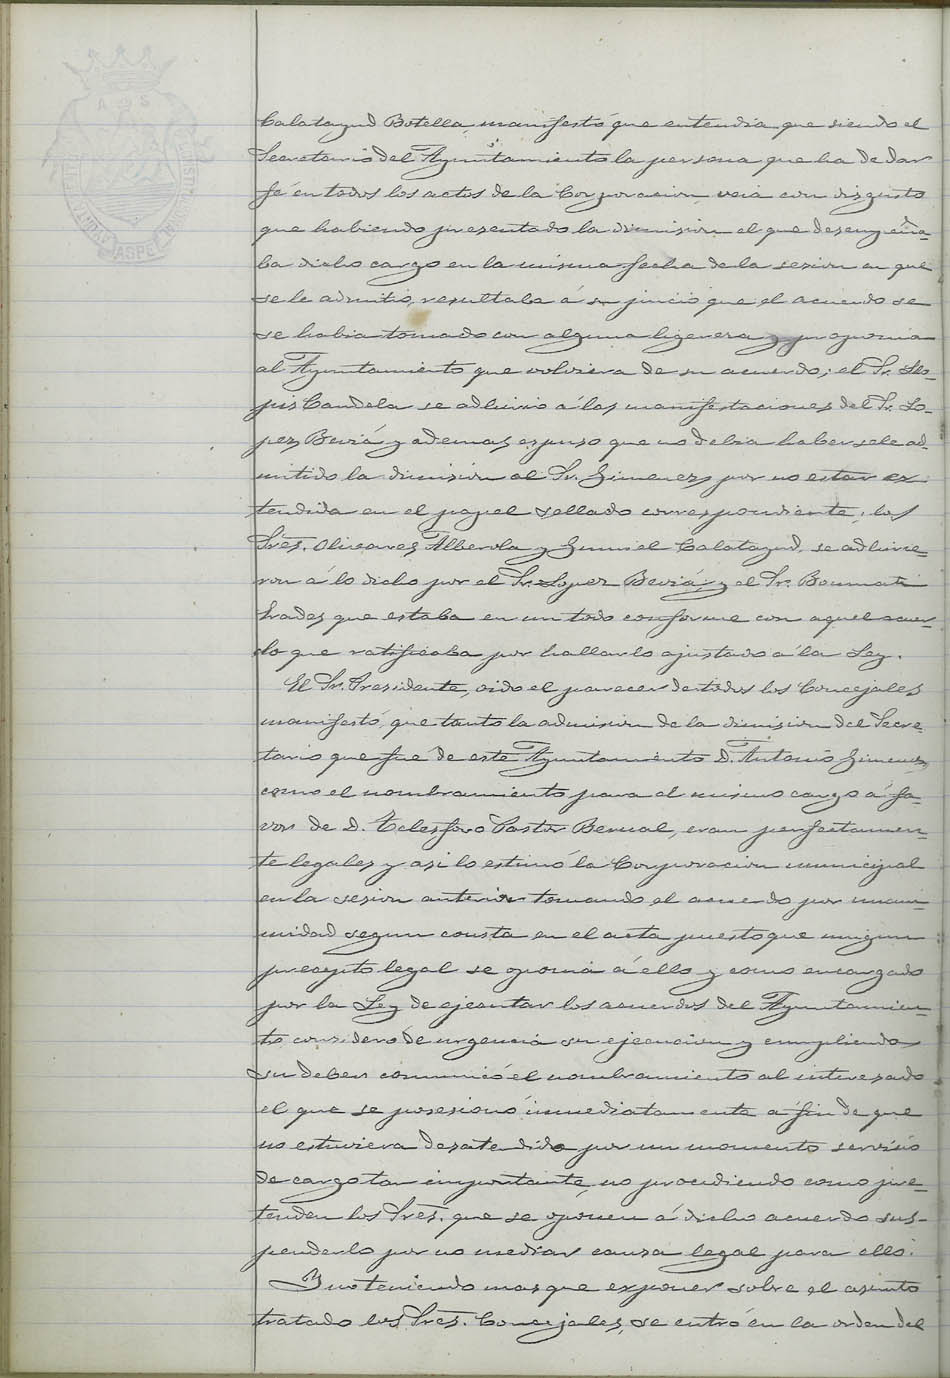 Calatayud Botella, manifestó que entendia que siendo el
Secretario del Ayuntamiento la persona que ha de dar
fé en todos los actos de la Corporacion, veia con disgusto
que habiendo presentado la dimision el que desempeña-
ba dicho cargo en la misma fecha de la sesion en que
se le admitio, resultaba á su juicio que el acuerdo se
se habia tomado con alguna ligereza y proponia
al Ayuntamiento que volviera de su acuerdo; el Sr. Llo-
pis Candela se adhirio á las manifestaciones del Sr. Lo-
pez Beviá y ademas expuso que no debia habersele ad-
mitido la dimision al Sr. Gimenez por no estar ex-
tendida en el papel sellado correspondiente; los
Sres. Olivares, Alberola y Gumiel Calatayud, se adhirie-
ron á lo dicho por el Sr. Lopez Beviá; y el Sr. Boumati
Prades que estaba en un todo conforme con aquel acuer-
do que ratificaba por hallarlo ajustado á la Ley.
El Sr. Presidente, oido el parecer de todos los Concejales
manifestó, que tanto la admision de la dimision del Secre-
tario que fué de este Ayuntamiento D. Antonio Gimenez,
como el nombramiento para el mismo cargo á fa-
vor de D. Telesforo Pastor Bernal, eran perfectamen-
te legales y asi lo estimó la Corporacion municipal
en la sesion anterior tomando el acuerdo por unani-
midad segun consta en el acta puesto que ningun
precepto legal se oponia á ello y como encargado
por la Ley de ejecutar los acuerdos del Ayuntamien-
to consideró de urgencia su ejecucion y cumpliendo
su deber comunicó el nombramiento al interesado
el que se posesionó inmediatamente á fin de que
no estuviera desatendido por un momento servicio
de cargo tan importante, no procediendo como pre-
tenden los Sres. que se oponen á dicho acuerdo sus-
penderlo por no mediar causa legal para ello.
Y no teniendo mas que exponer sobre el asunto
tratado los Sres. Concejales, se entró en la orden del